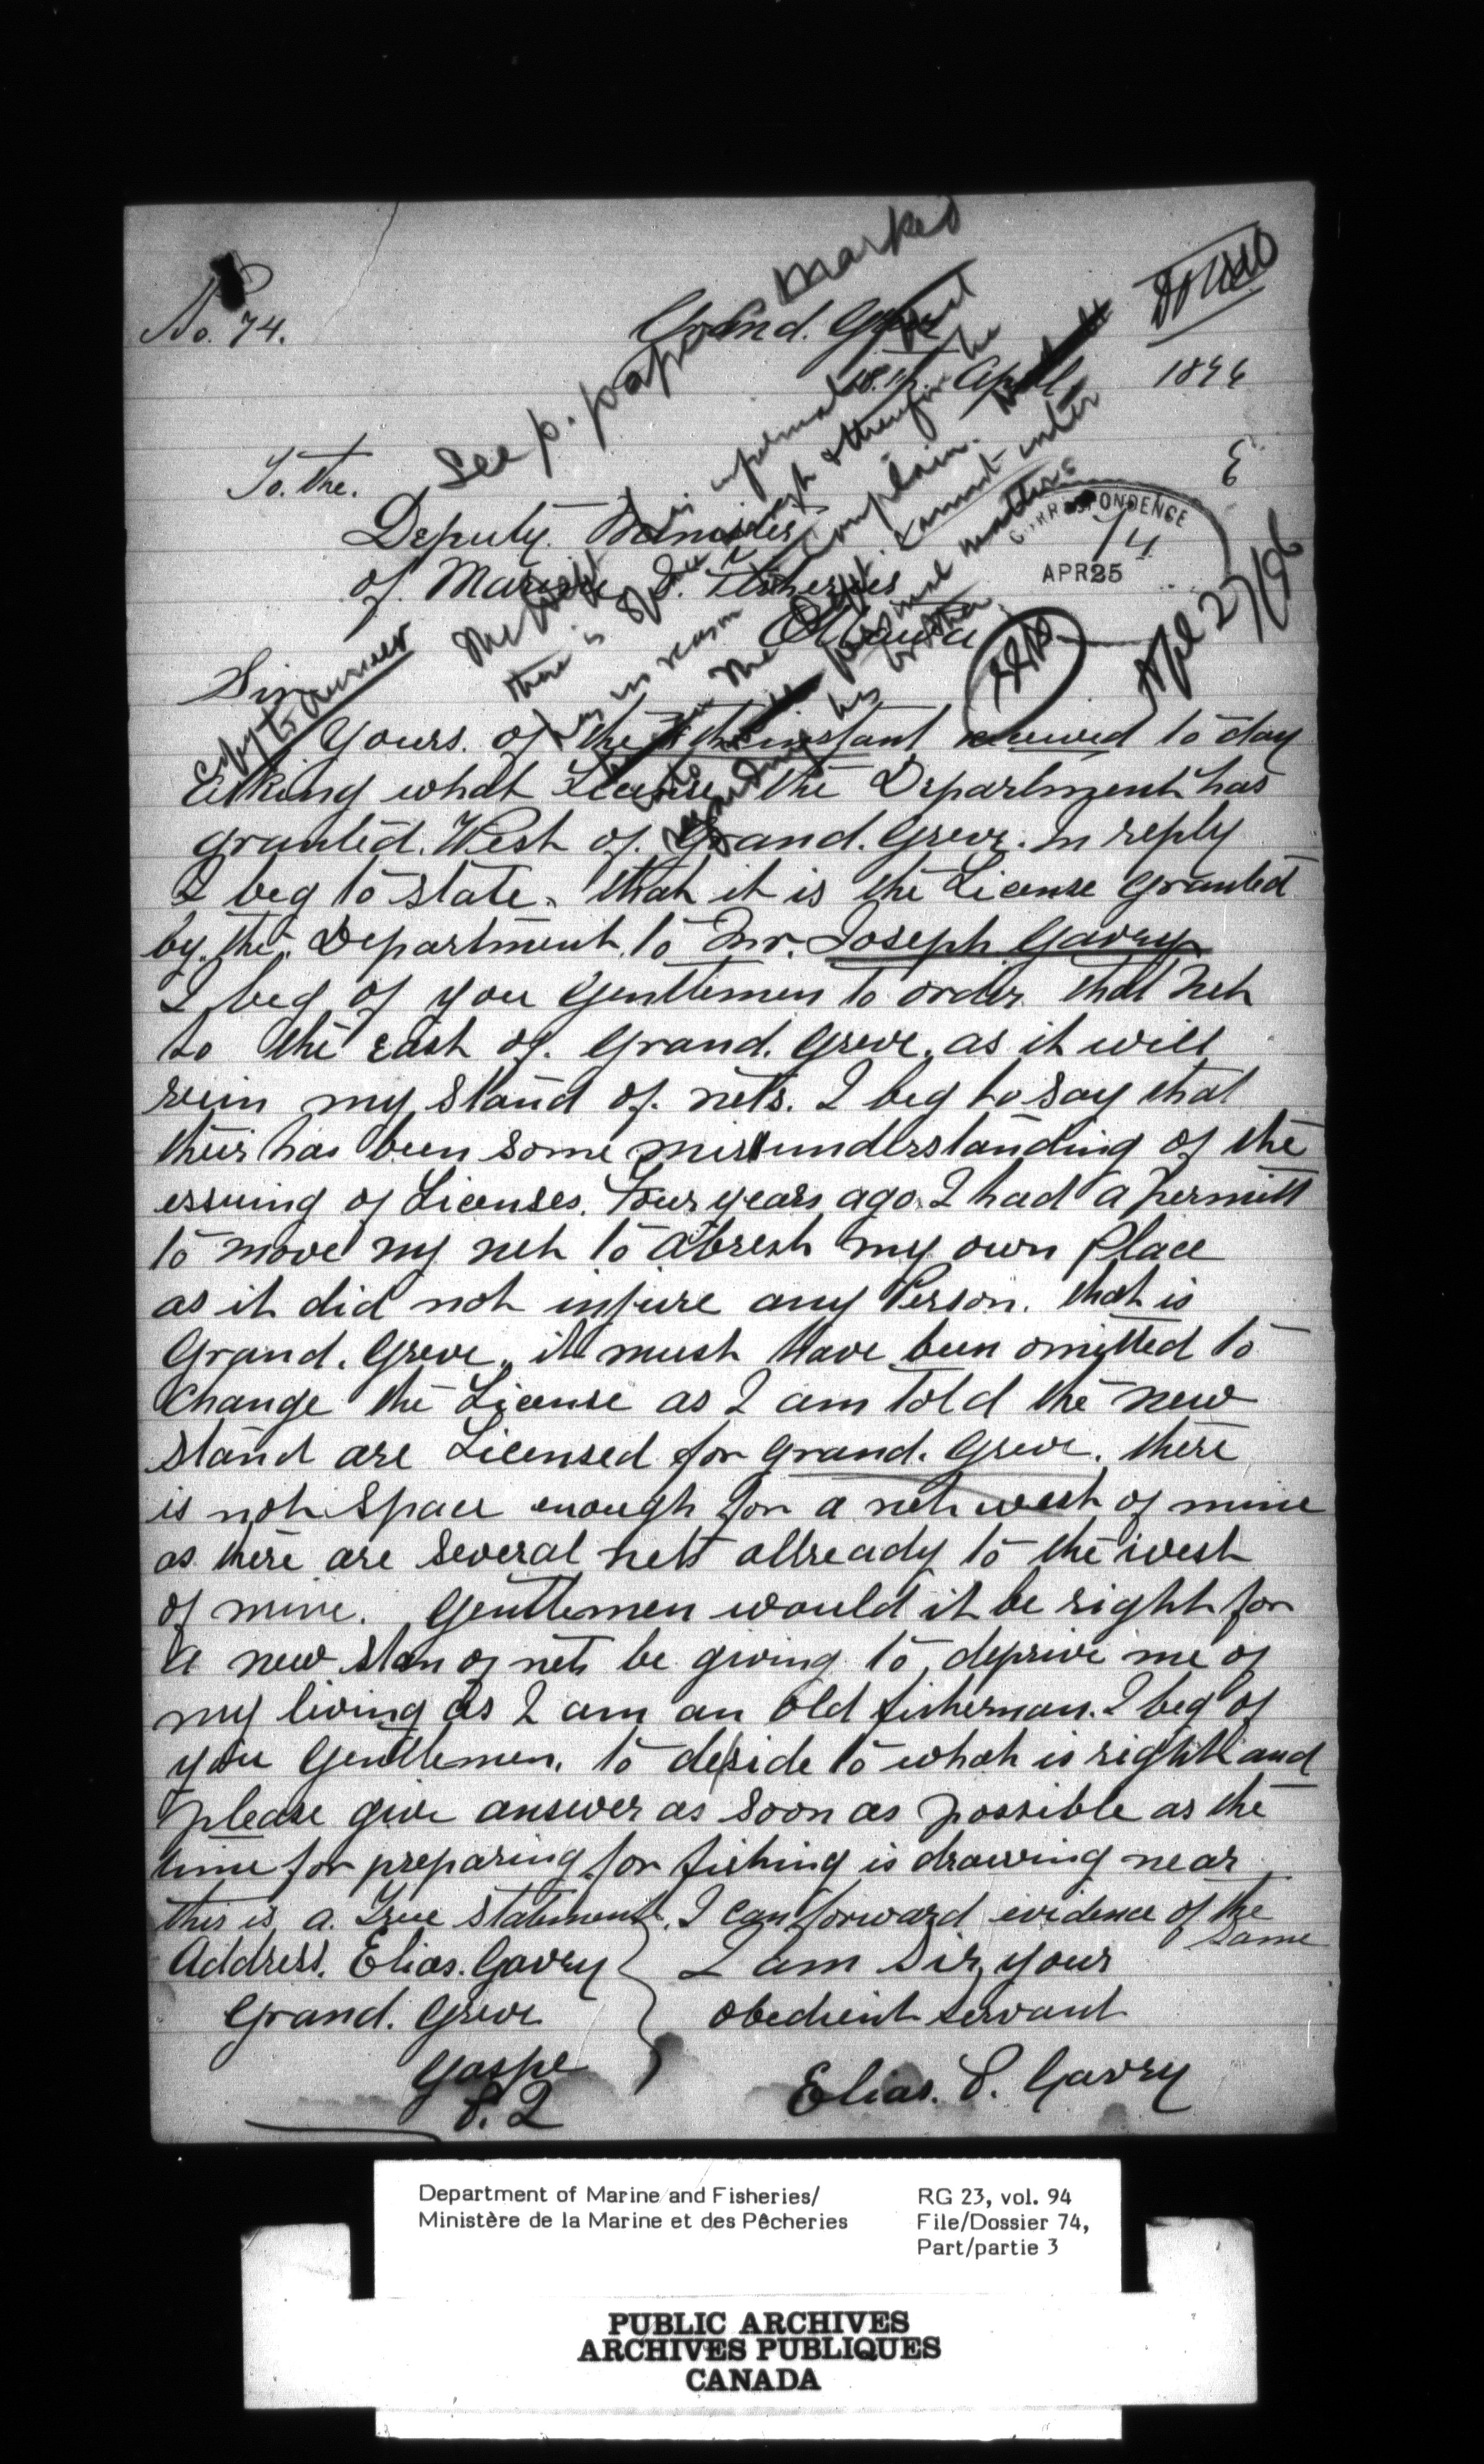 No. 74.
Grand. Greve
18th April 1896
See p. papers marked
To. The.
Deputy. Minister
of. Marine & Fisheries
Ottawa
CORRESPONDENCE
74
APR 25
April 27/96
The Dept is informed that
there is space enough & therefore he
has no reason to complain.
The Dept. cannot enter
into personal matters
regarding his brother.
Copy to
Sir
Yours. of the instant received to day
asking what License the Department has
granted. West of. Grand. Greve. in reply
I beg to state. that it is the License granted
by. the. Department. to Mr. Joseph Gavey
I beg of you Gentlemen to order that net
to the east of. Grand. Greve. as it will
ruin my stand of. nets. I beg to say that
their has been some misunderstanding of the
essuing of Licenses. Four years ago. I had a permitt
to move my net to abrest my own place
as it did not injure any Person. that is
Grand. Greve. it must have been omitted to
Change the License as I am Told the new
stand are Licensed for Grand. Greve. there
is not space enough for a net west of mine
as there are several nets allready to the west
of mine. Gentlemen would it be right for
a new stan of nets be giving to deprive me of
my living as I am an old fisherman. I beg of
you Gentlemen. to deside to what is right and
please give answer as soon as possible as the
time for preparing for fishing is drawing near
this is a. True statement. I can forward evidence of the
same
Address. Elias. Gavey
Grand. Greve
Gaspe
P. Q
I am Sir, your
obedient servant
Elias. P. Gavey
Department of Marine and Fisheries/
Ministère de la Marine et des Pêcheries
RG 23, vol. 94
File/Dossier 74,
Part/partie 3
PUBLIC ARCHIVES
ARCHIVES PUBLIQUES
CANADA